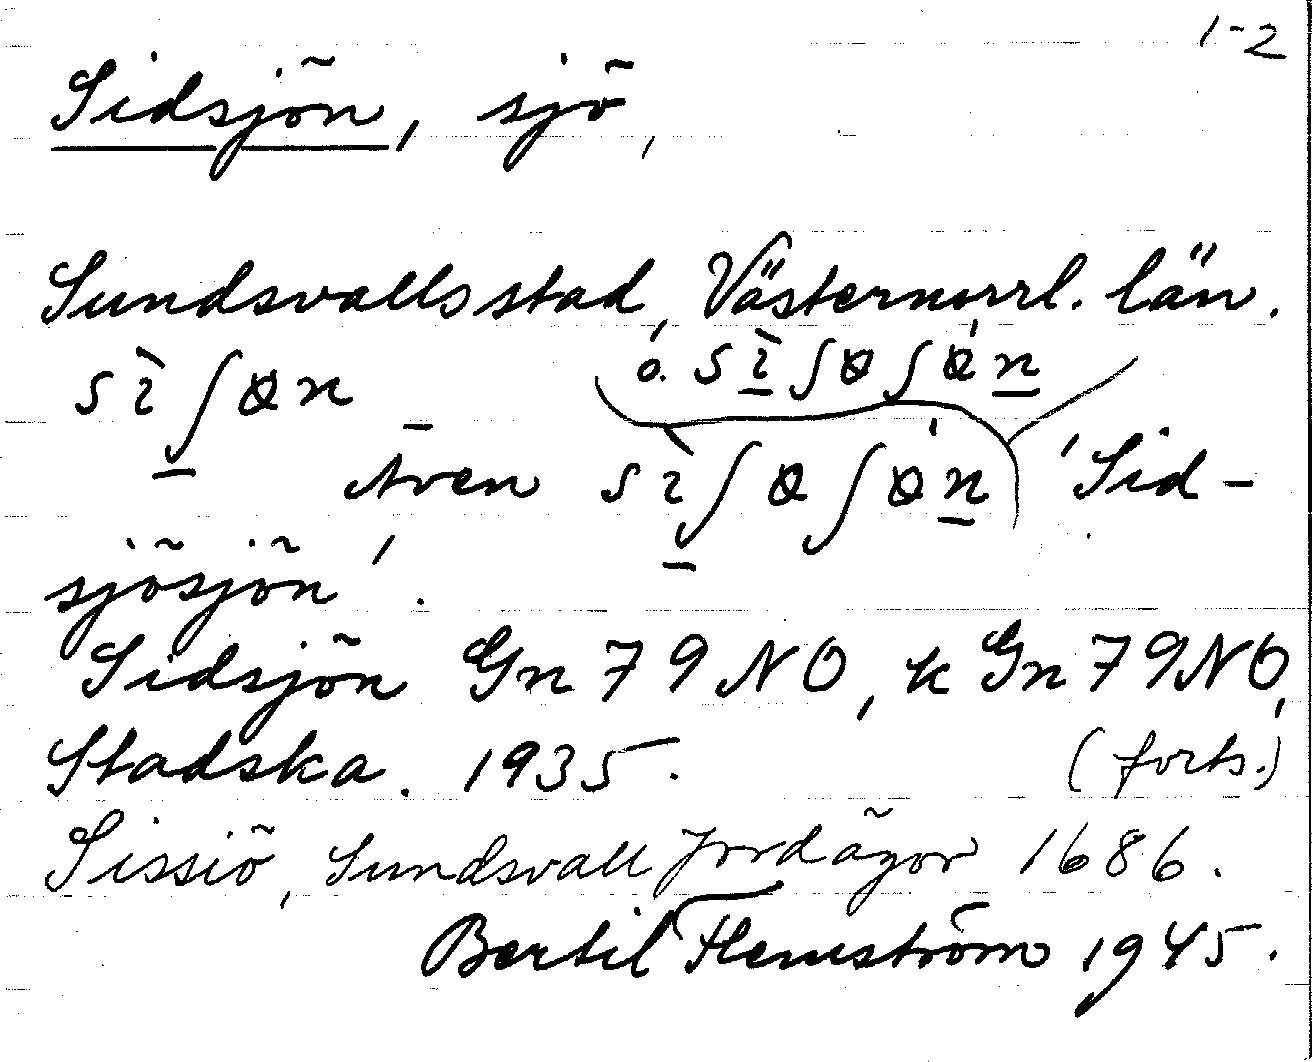 1-2
Sidsjön, sjö,
Sundsvalls stad, Västernorrl. län.
sìʃɵn ó. sìʃɵʃɵ́n
Även sìʃɵʃɵ́n 'Sid-
sjösjön'.
Sidsjön Gn 79 NO, k Gn 79 NO,
Stadska. 1935. (forts.)
Sissiö, Sundsvall Jordägor 1686.
Bertil Flemström 1945.